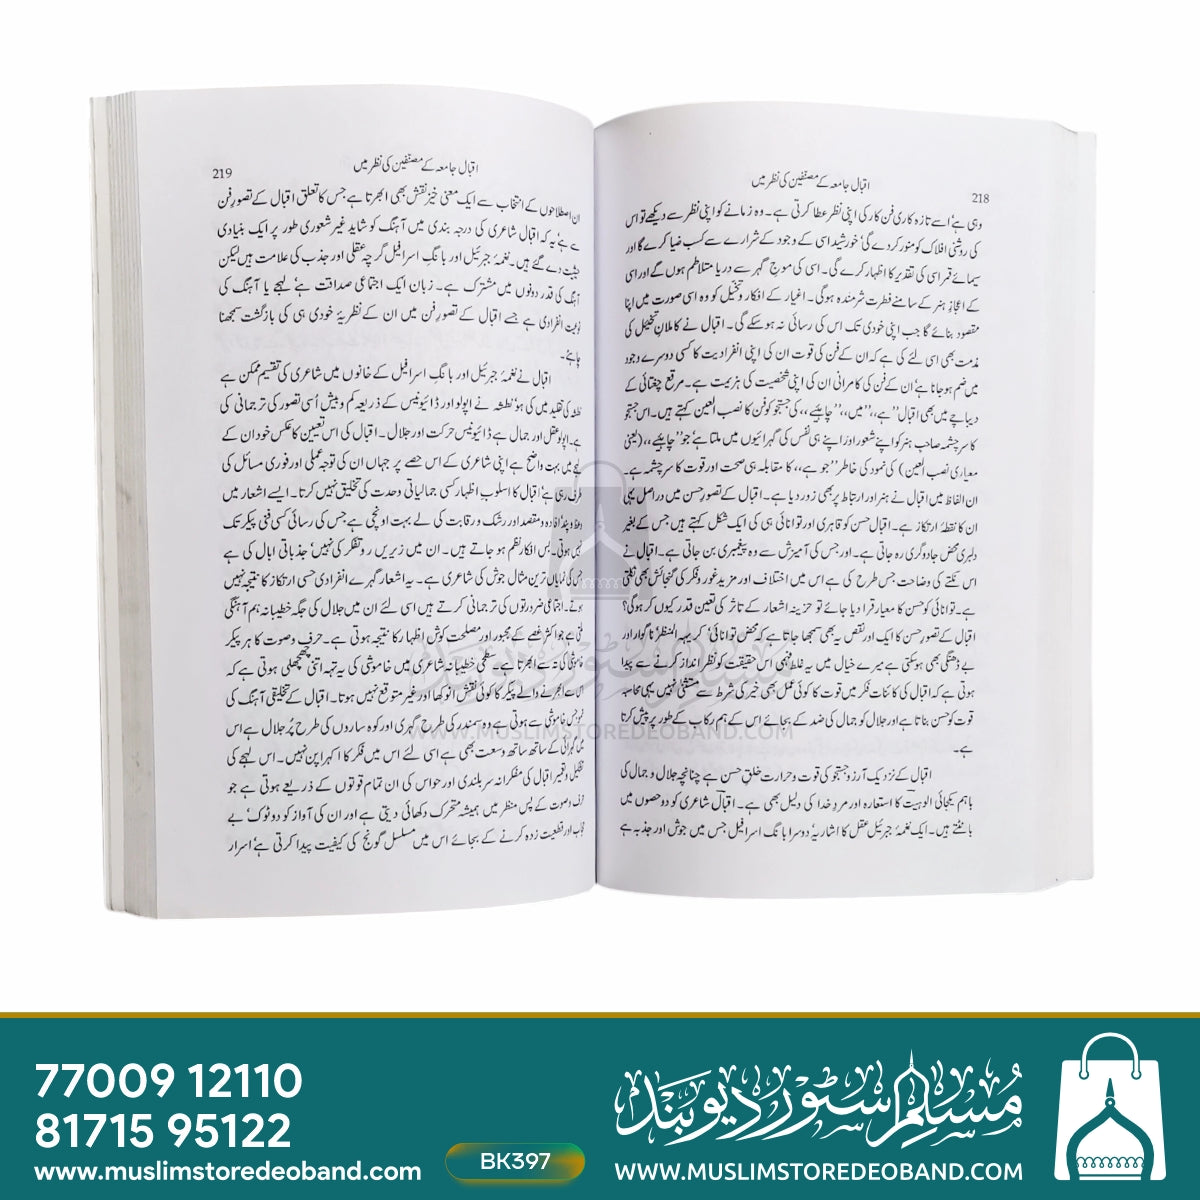 اقبال جامعہ کے مصنفین کی نظر میں
218
وہی ہے اسے تازہ کاری فن کار کی اپنی نظر عطا کرتی ہے۔ وہ زمانے کو اپنی نظر سے دیکھے تو اس
کی روشنی افلاک کو منور کر دے گی، خورشید اسی کے وجود کے شرارے سے کسب ضیا کرے گا اور
سیمائے قمر اسی کی تقدیر کا اظہار کرے گی۔ اسی کی موج گہر سے دریا متلاطم ہوں گے اور اسی
کے اعجازِ ہنر کے سامنے فطرت شرمندہ ہوگی۔ اغیار کے افکار و تخیل کو وہ اسی صورت میں اپنا
مقصود بنائے گا جب اپنی خودی تک اس کی رسائی نہ ہو سکے گی۔ اقبال نے کاملانِ تخیّل کی
مذمت بھی اسی لئے کی ہے کہ ان کے فن کی قوت ان کی اپنی انفرادیت کا کسی دوسرے وجود
میں ضم ہو جانا ہے، ان کے فن کی کامرانی ان کی اپنی شخصیت کی ہزیمت ہے۔ مرقع چغتائی کے
دیباچے میں بھی اقبال ”ہے،، میں ،،چاہئیے،، کی جستجو کو فن کا نصب العین کہتے ہیں۔ اس جستجو
کا سرچشمہ صاحبِ ہنر کو اپنے شعور اور اپنے ہی نفس کی گہرائیوں میں ملتا ہے، جو ”چاہئیے،، (یعنی
معیاری نصب العین) کی نمود کی خاطر ”جو ہے،، کا مقابلہ ہی صحت اور قوت کا سرچشمہ ہے۔
ان الفاظ میں اقبال نے ہنر اور ارتباط پر بھی زور دیا ہے۔ اقبال کے تصورِ حسن میں دراصل یہی
ان کا نقطۂ ارتکاز ہے۔ اقبال حسن کو قاہری اور توانائی ہی کی ایک شکل کہتے ہیں جس کے بغیر
دلبری محض جادوگری رہ جاتی ہے۔ اور جس کی آمیزش سے وہ پیغمبری بن جاتی ہے۔ اقبال نے
اس نکتے کی وضاحت جس طرح کی ہے اس میں اختلاف اور مزید غور و فکر کی گنجائش بھی نکلتی
ہے۔ توانائی کو حسن کا معیار قرار دیا جائے تو حزینہ اشعار کے تاثر کی تعین قدر کیوں کر ہوگی؟
اقبال کے تصورِ حسن کا ایک اور نقص یہ بھی سمجھا جاتا ہے کہ محض توانائی، کریہہ المنظر ناگوار اور
بے ڈھنگی بھی ہو سکتی ہے میرے خیال میں یہ غلط فہمی اس حقیقت کو نظر انداز کرنے سے پیدا
ہوتی ہے کہ اقبال کی کائناتِ فکر میں قوت کا کوئی عمل بھی خیر کی شرط سے مستثنیٰ نہیں یہی محاسبہ
قوت کو حسن بناتا ہے اور جلال کو جمال کی ضد کے بجائے اس کے ہم رکاب کے طور پر پیش کرتا
ہے۔
اقبال کے نزدیک آرزو و جستجو کی قوت و حرارت خلقِ حسن ہے چنانچہ جلال و جمال کی
باہم یکجائی الوہیت کا استعارہ اور مردِ خدا کی دلیل بھی ہے۔ اقبال شاعری کو دو حصوں میں
بانٹتے ہیں۔ ایک نغمۂ جبرئیل عقل کا اشاریہ، دوسرا بانگِ اسرافیل جس میں جوش اور جذبہ ہے
اقبال جامعہ کے مصنفین کی نظر میں
219
ان اصطلاحوں کے انتخاب سے ایک معنی خیز نقش بھی ابھرتا ہے جس کا تعلق اقبال کے تصورِ فن
سے ہے، یہ کہ اقبال شاعری کی درجہ بندی میں آہنگ کو شاید غیر شعوری طور پر ایک بنیادی
حیثیت دے گئے ہیں۔ نغمۂ جبرئیل اور بانگِ اسرافیل گرچہ عقلی اور جذب کی علامت ہیں لیکن
آہنگ کی قدر دونوں میں مشترک ہے۔ زبان ایک اجتماعی صداقت ہے، لہجے یا آہنگ کی
نوعیت انفرادی ہے جسے اقبال کے تصورِ فن میں ان کے نظریۂ خودی ہی کی بازگشت سمجھنا
چاہئے۔
اقبال نے نغمۂ جبرئیل اور بانگِ اسرافیل کے خانوں میں شاعری کی تقسیم ممکن ہے
نطشہ کی تقلید میں کی ہو، نطشہ نے اپولو اور ڈائیونیس کے ذریعہ کم و بیش اُسی تصور کی ترجمانی کی
ہے۔ اپولو عقل اور جمال ہے ڈائیونیس حرکت اور جلال۔ اقبال کی اس تعیین کا عکس خود ان کے
لہجے میں بہت واضح ہے اپنی شاعری کے اس حصے پر جہاں ان کی توجہ عملی اور فوری مسائل کی
طرف رہی ہے، اقبال کا اسلوبِ اظہار کسی جمالیاتی وحدت کی تخلیق نہیں کرتا۔ ایسے اشعار میں
وعظ و پند، افادہ و مقصد اور رشک و رقابت کی لے بہت اونچی ہے جس کی رسائی کسی فنی پیکر تک
نہیں ہوتی۔ بس افکار نظم ہو جاتے ہیں۔ ان میں زیریں رو تفکر کی نہیں، جذباتی ابال کی ہے
جس کی نمایاں ترین مثال جوش کی شاعری ہے۔ یہ اشعار گہرے انفرادی حسی ارتکاز کا نتیجہ نہیں
ہوتے۔ اجتماعی ضرورتوں کی ترجمانی کرتے ہیں اسی لئے ان میں جلال کی جگہ خطیبانہ ہم آہنگی
ملتی ہے جو اکثر غصے کے مجبور اور مصلحت کوش اظہار کا نتیجہ ہوتی ہے۔ حرف و صوت کا ہر پیکر
خاموشی کی تہ سے ابھرتا ہے۔ سطحی خطیبانہ شاعری میں خاموشی کی یہ تہہ اتنی چھچھلی ہوتی ہے کہ
اس سے ابھرنے والے پیکر کا کوئی نقش انوکھا اور غیر متوقع نہیں ہوتا۔ اقبال کے تخلیقی آہنگ کی
نمو جس خاموشی سے ہوتی ہے وہ سمندر کی طرح گہری اور کوہساروں کی طرح پُر جلال ہے اس
میں گہرائی کے ساتھ ساتھ وسعت بھی ہے اسی لئے اس میں فکر کا اکہرا پن نہیں۔ اس لہجے کی
تشکیل و تعمیر اقبال کی مفکرانہ سربلندی اور حواس کی ان تمام قوتوں کے ذریعے ہوتی ہے جو
حرف و صوت کے پس منظر میں ہمیشہ متحرک دکھائی دیتی ہے اور ان کی آواز کو دو ٹوک، بے
حجاب اور قطعیت زدہ کرنے کے بجائے اس میں مسلسل گونج کی کیفیت پیدا کرتی ہے، اسرار
مسلم سٹور دیوبند
WWW.MUSLIMSTOREDEOBAND.COM
77009 12110
81715 95122
www.muslimstoredeoband.com
BK397
مسلم سٹور دیوبند
WWW.MUSLIMSTOREDEOBAND.COM